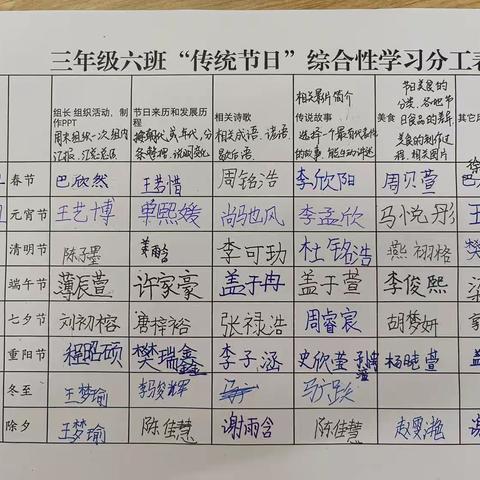 三年级六班“传统节日”综合性学习分工表
组长 组织活动、制作PPT 周末组织一次组内汇报、汇总总结
节日来历和发展历程 按朝代或年代,分条整理,说明变化
相关诗歌 相关成语、谚语、歇后语
相关影片简介 传说故事、选择一个最有代表性的故事,能生动讲述
美食 节日美食的分类、各地节日食品的差异、美食的制作过程,相关图片
其它
春节 巴欣然 王若惜 周铭浩 李欣阳 周贝萱
元宵节 王艺博 单熙媛 尚驰风 李孟欣 马悦彤 王
清明节 陈子墨 姜雨含 李可玏 杜铭浩 燕栩格 樊
端午节 薄辰萱 许家豪 盖于冉 盖于萱 李俊熙
七夕节 刘初榕 唐梓裕 张禄浩 周睿宸 胡梦妍
重阳节 程昭硕 樊瑞鑫 李子涵 史欣莹 杨晓萱
冬至 王梦瑜 李骏辉
除夕 王梦瑜 陈佳慧 谢雨含 陈佳慧 赵雯滟